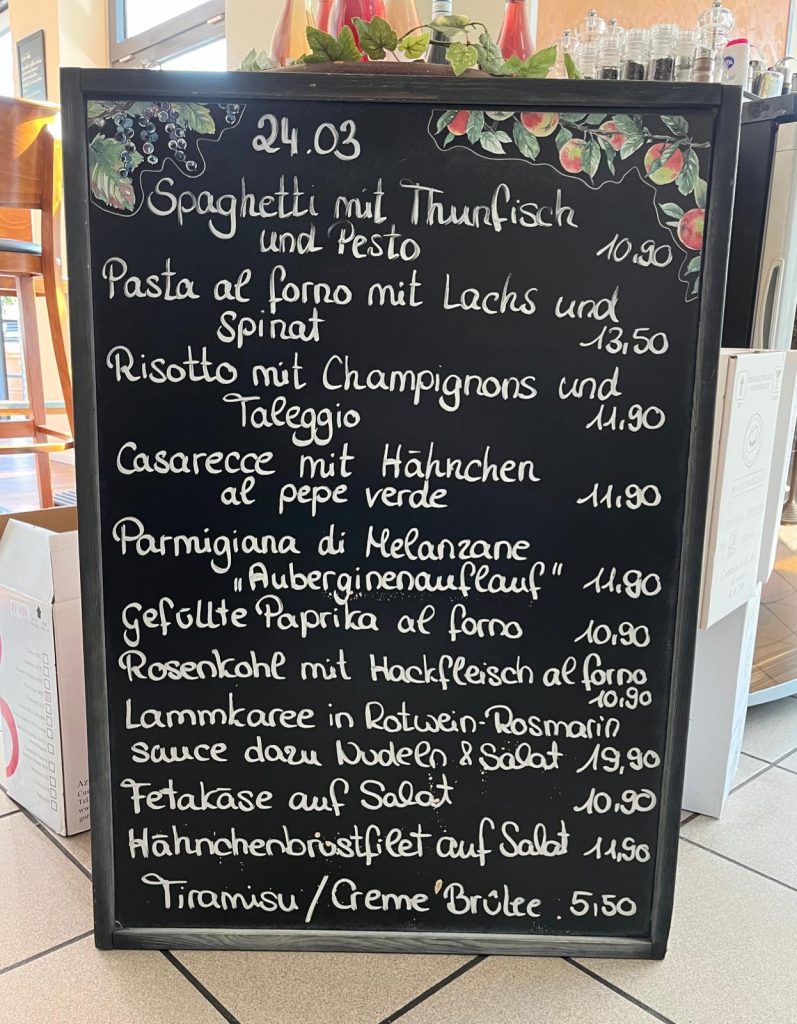 24.03
Spaghetti mit Thunfisch
und Pesto 10.90
Pasta al forno mit Lachs und
Spinat 13,50
Risotto mit Champignons und
Taleggio 11.90
Casarecce mit Hähnchen
al pepe verde 11.90
Parmigiana di Melanzane
„Auberginenauflauf" 11.90
Gefüllte Paprika al forno 10.90
Rosenkohl mit Hackfleisch al forno
10.90
Lammkaree in Rotwein-Rosmarin
sauce dazu Nudeln & Salat 19,90
Fetakäse auf Salat 10.90
Hähnchenbrüstfilet auf Salat 11,90
Tiramisu / Creme Brûlee . 5,50